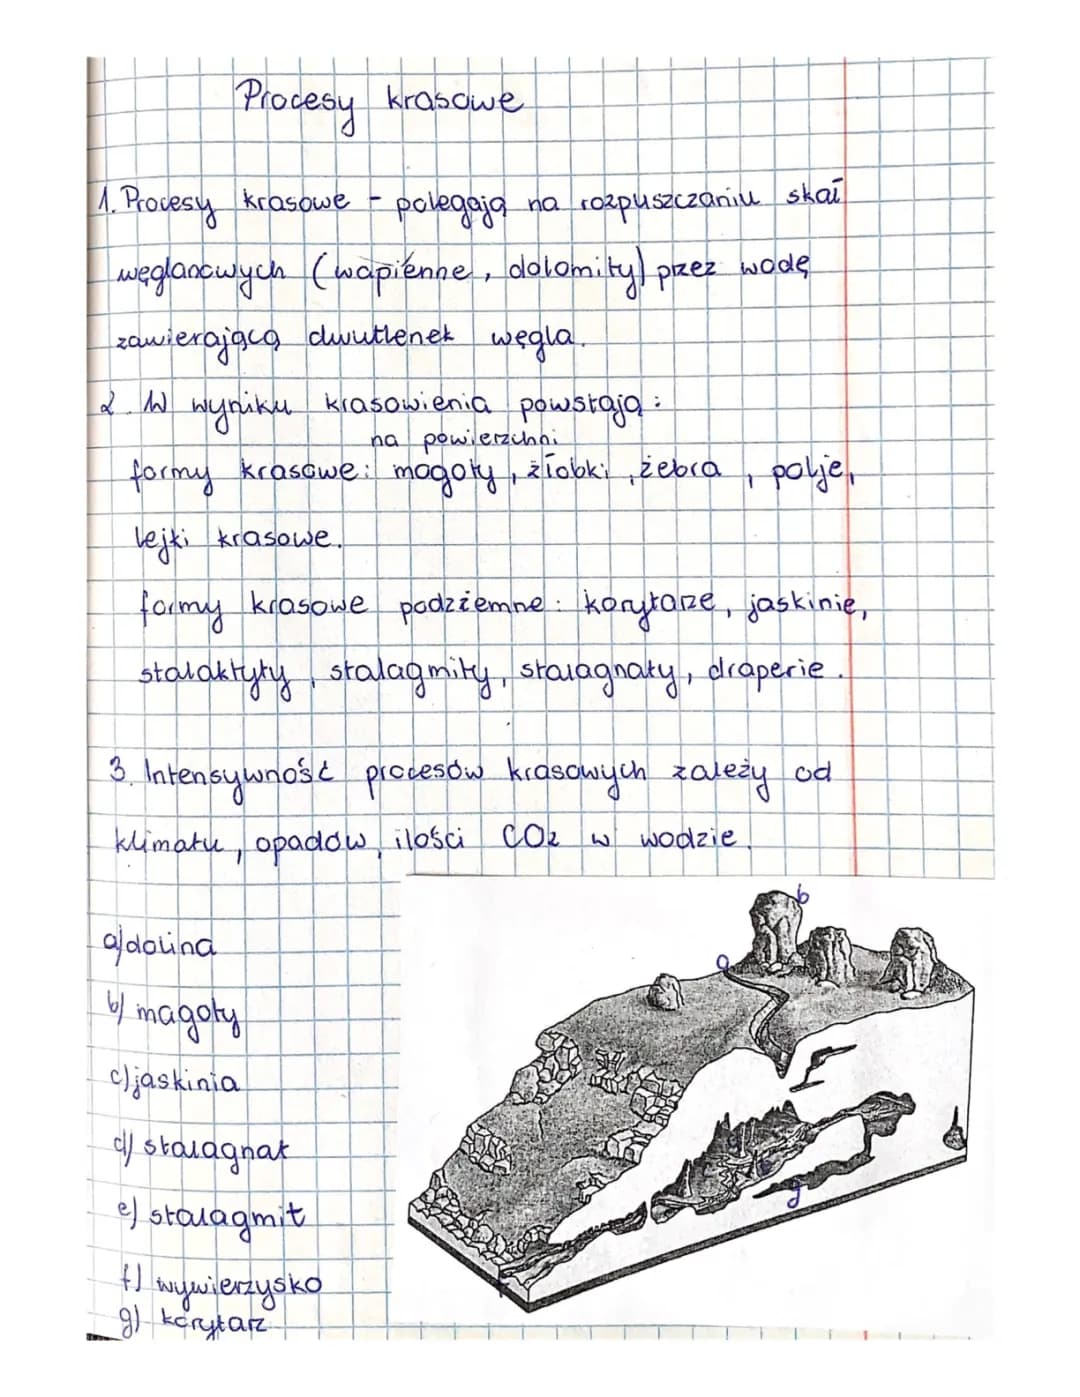 Procesy krasowe
1. Procesy krasowe - polegają na rozpuszczaniu skał
węglanowych (wapienne, dolomity) przez wodę
zawierającą dwutlenek węgla.
2. W wyniku krasowienia powstają:
na powierzchni
formy krasowe: mogoty, żłobki, żebra, polje,
lejki krasowe.
formy krasowe podziemne: korytarze, jaskinie,
stalaktyty, stalagmity, stalagnaty, draperie.
3. Intensywność procesów krasowych zależy od
klimatu, opadów, ilości CO2 w wodzie.
b
a
a) dolina
b) magoty
c) jaskinia
d) stalagnat
e) stalagmit
g
f) wywierzysko
g) korytarz